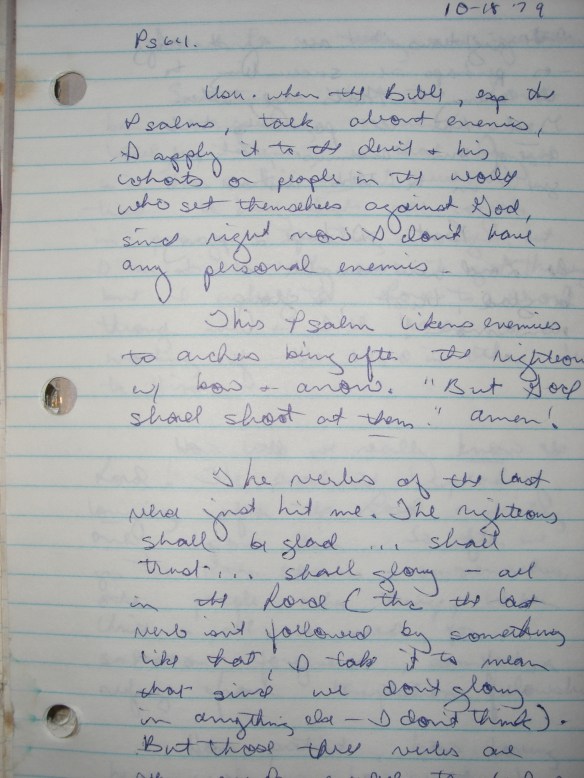 10-18-79
Ps 64.
Usu. when the Bible, esp the
Psalms, talk about enemies,
I apply it to the devil + his
cohorts or people in the world
who set themselves against God,
since right now I don't have
any personal enemies -
This Psalm likens enemies
to archers being after the righteous
w/ bow + arrow. "But God
shall shoot at them." Amen!
The verbs of the last
verse just hit me. The righteous
shall be glad ... shall
trust ... shall glory - all
in the Lord (tho the last
verb isn't followed by something
like that, I take it to mean
that since we don't glory
in anything else - I don't think).
But those three verbs are